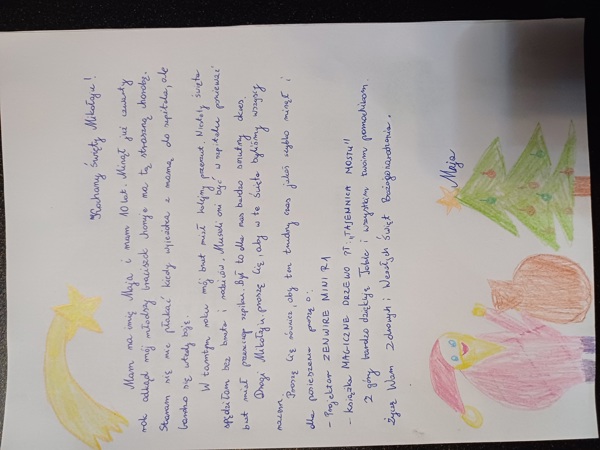 Kochany Święty Mikołaju!
Mam na imię Maja i mam 10 lat. Minął już czwarty
rok odkąd mój młodszy braciszek choruje na tą straszną chorobę.
Staram się nie płakać kiedy wyjeżdża z mamą do szpitala, ale
bardzo się wtedy boję.
W tamtym roku mój brat miał kolejny przerzut. Niestety święta
spędziłam bez brata i rodziców. Musieli oni być w szpitalu ponieważ
brat miał przeszczep szpiku. Był to dla nas bardzo smutny okres.
Drogi Mikołaju proszę Cię, aby w te święta byliśmy wszyscy
razem.
Proszę Cię również, aby ten trudny czas jakoś szybko minął i
dla pocieszenia proszę o:
- Projektor ZENWIRE MINI R1
- książka MAGICZNE DRZEWO PT: „TAJEMNICA MOSTU"
Z góry bardzo dziękuję Tobie i wszystkim twoim pomocnikom.
Życzę Wam Zdrowych i Wesołych Świąt Bożego Narodzenia.
Maja